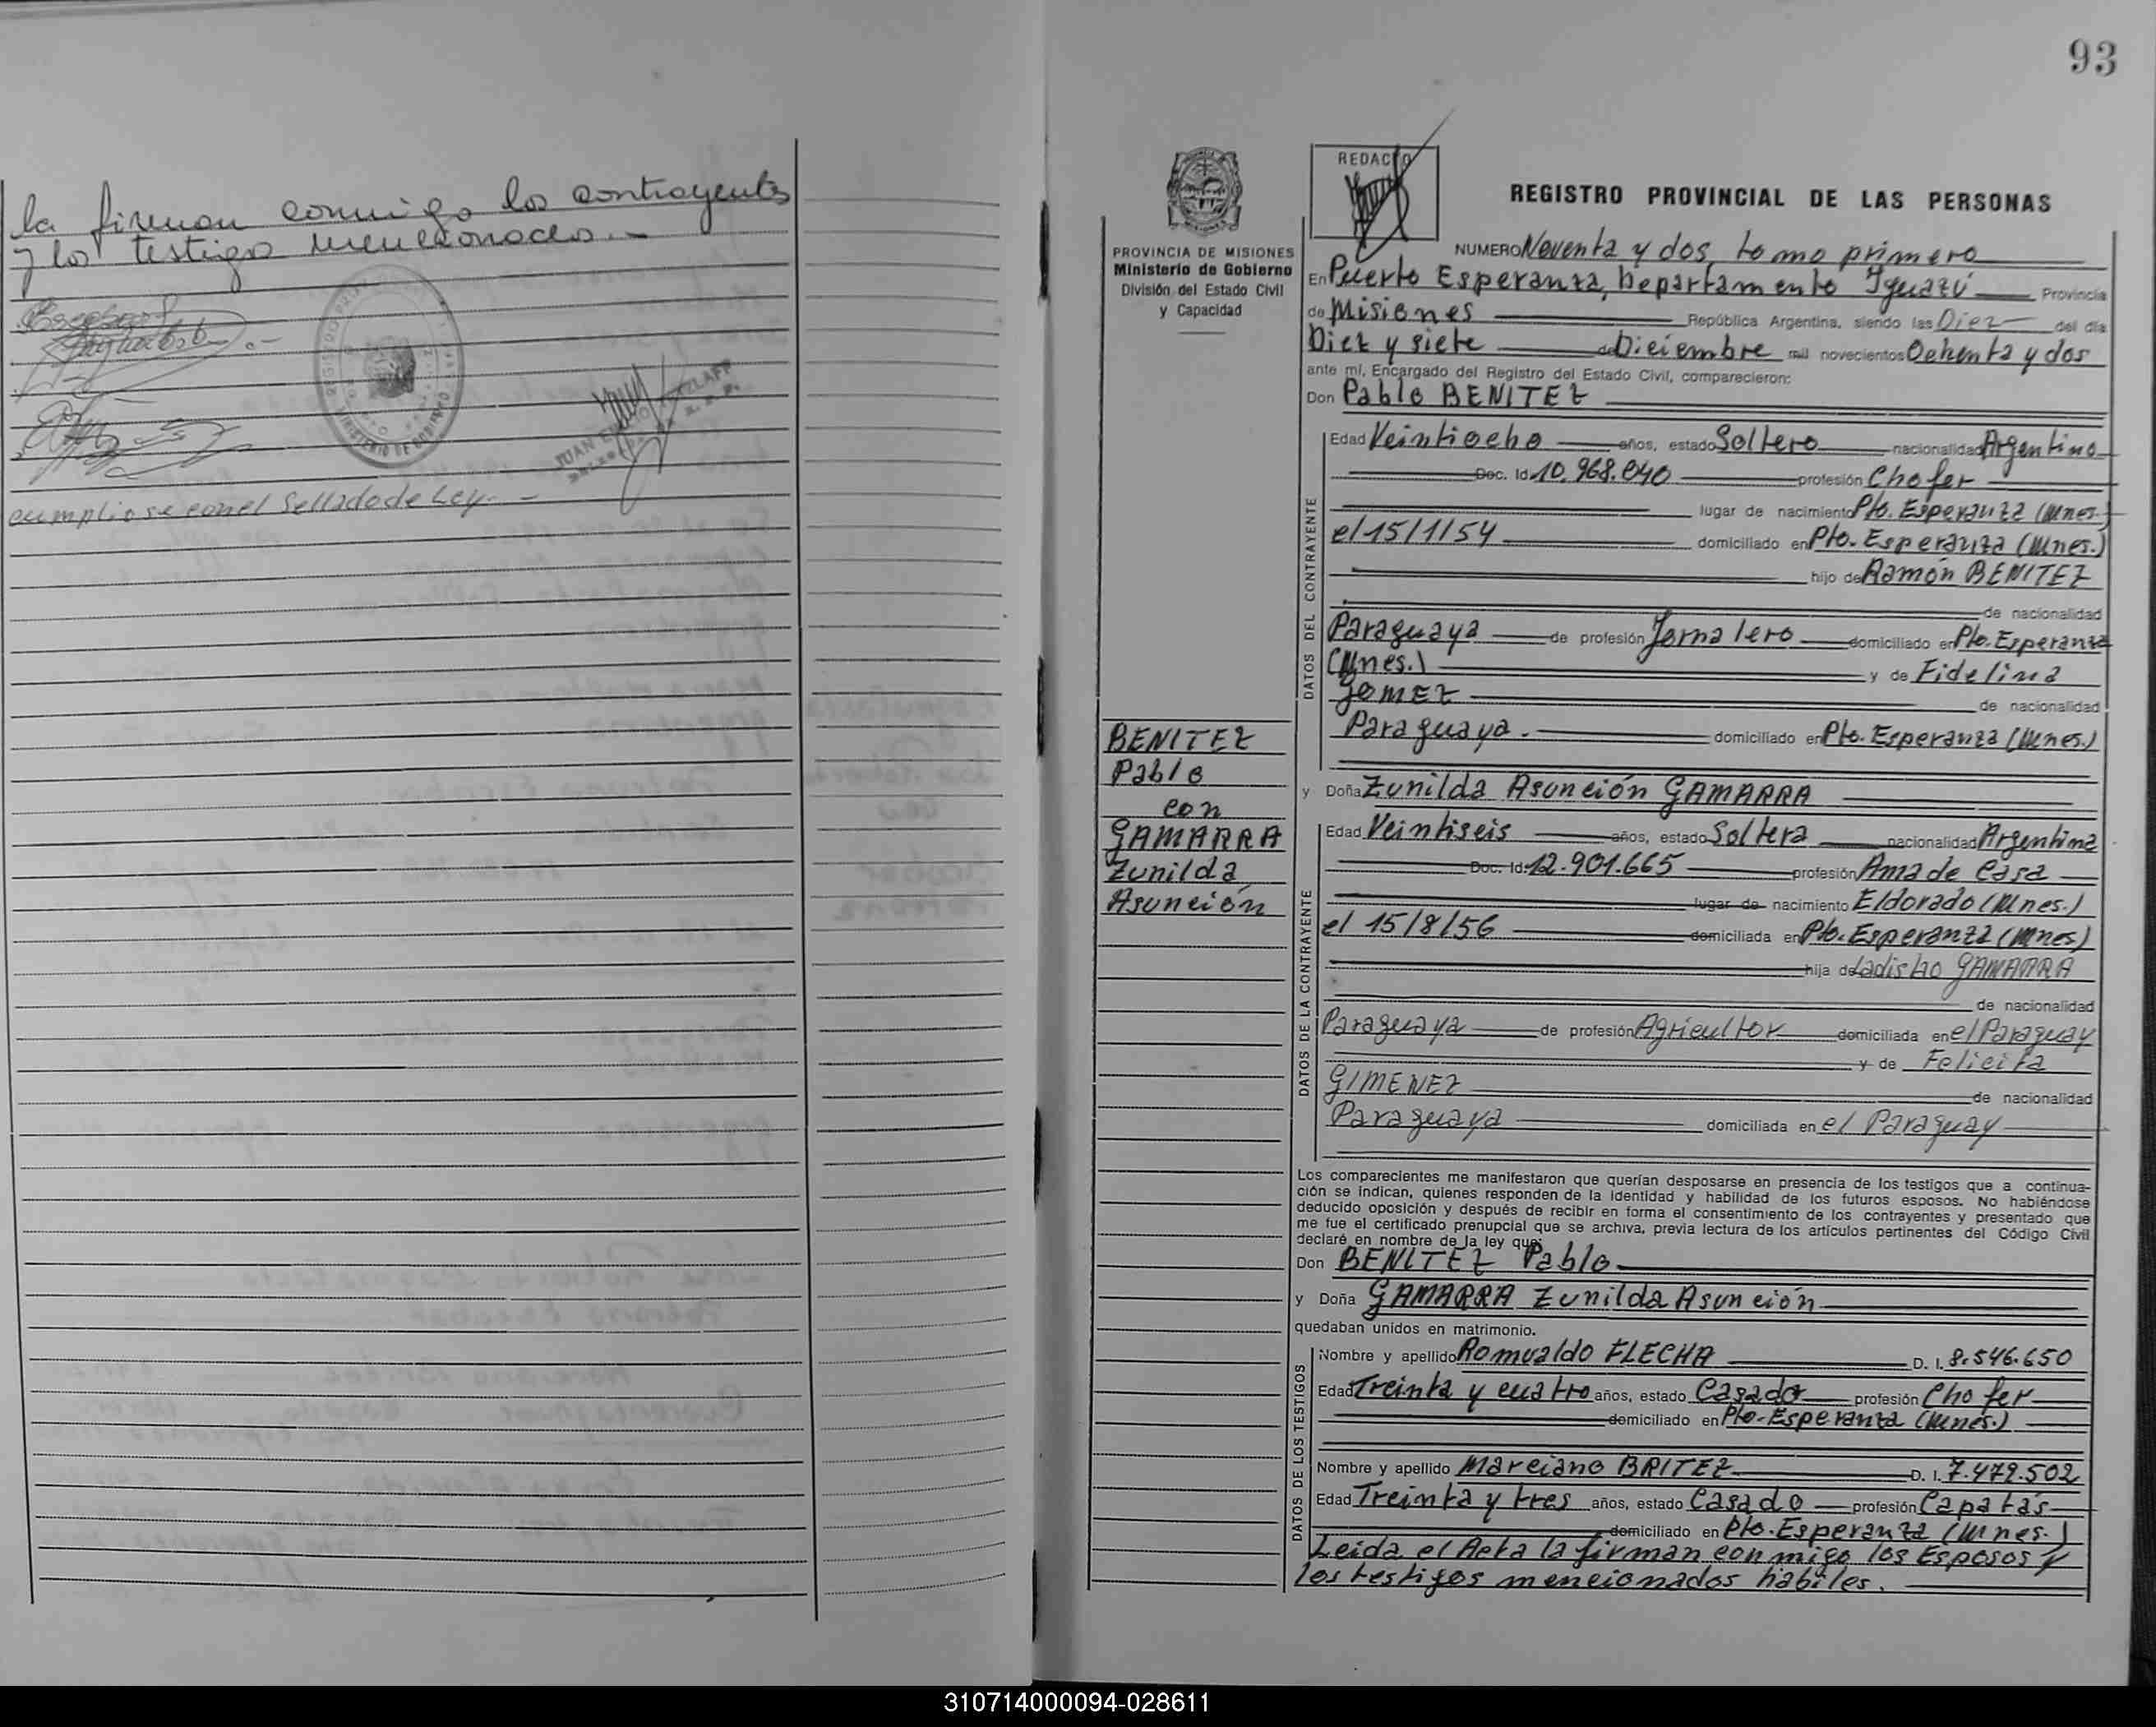 la firman conmigo los contrayentes
y lo testigo mencionados.-
REGISTRO
MINISTERIO DE GOBIERNO
JUAN
cumpliose con el Sellado de Ley.-
93
REDACTO
REGISTRO PROVINCIAL DE LAS PERSONAS
PROVINCIA DE MISIONES
Ministerio de Gobierno
División del Estado Civil
y Capacidad
NUMERO Noventa y dos, tomo primero
En Puerto Esperanza, Departamento Iguazú Provincia
de Misiones República Argentina, siendo las Diez del día
Diez y siete de Diciembre mil novecientos Ochenta y dos
ante mí, Encargado del Registro del Estado Civil, comparecieron:
Don Pablo BENITEZ
DATOS DEL CONTRAYENTE
Edad Veintiocho años, estado Soltero nacionalidad Argentino
Doc. Id. 10.968.040 profesión Chofer
lugar de nacimiento Pto. Esperanza (Mnes.)
el 15/1/54 domiciliado en Pto. Esperanza (Mnes.)
hijo de Ramón BENITEZ
de nacionalidad
Paraguaya de profesión Jornalero domiciliado en Pto. Esperanza
(Mnes.) y de Fidelina
GOMEZ de nacionalidad
Paraguaya. domiciliado en Pto. Esperanza (Mnes.)
BENITEZ
Pablo
con
GAMARRA
Zunilda
Asunción
y Doña Zunilda Asunción GAMARRA
DATOS DE LA CONTRAYENTE
Edad Veintiseis años, estado Soltera nacionalidad Argentina
Doc. Id. 12.901.665 profesión Ama de Casa
lugar de nacimiento Eldorado (Mnes.)
el 15/8/56 domiciliada en Pto. Esperanza (Mnes)
hija de Ladislao GAMARRA
de nacionalidad
Paraguaya de profesión Agricultor domiciliada en el Paraguay
y de Felicita
GIMENEZ de nacionalidad
Paraguaya domiciliada en el Paraguay
Los comparecientes me manifestaron que querían desposarse en presencia de los testigos que a continua-
ción se indican, quienes responden de la identidad y habilidad de los futuros esposos. No habiéndose
deducido oposición y después de recibir en forma el consentimiento de los contrayentes y presentado que
me fue el certificado prenupcial que se archiva, previa lectura de los artículos pertinentes del Código Civil
declaré en nombre de la ley que:
Don BENITEZ Pablo
y Doña GAMARRA Zunilda Asunción
quedaban unidos en matrimonio.
DATOS DE LOS TESTIGOS
Nombre y apellido Romualdo FLECHA D. I. 8.546.650
Edad Treinta y cuatro años, estado Casado profesión Chofer
domiciliado en Pto. Esperanza (Mnes.)
Nombre y apellido Marciano BRITEZ D. I. 7.479.502
Edad Treinta y tres años, estado Casado profesión Capatás
domiciliado en Pto. Esperanza (Mnes.)
Leída el Acta la firman conmigo los Esposos y
los testigos mencionados hábiles.
310714000094-028611